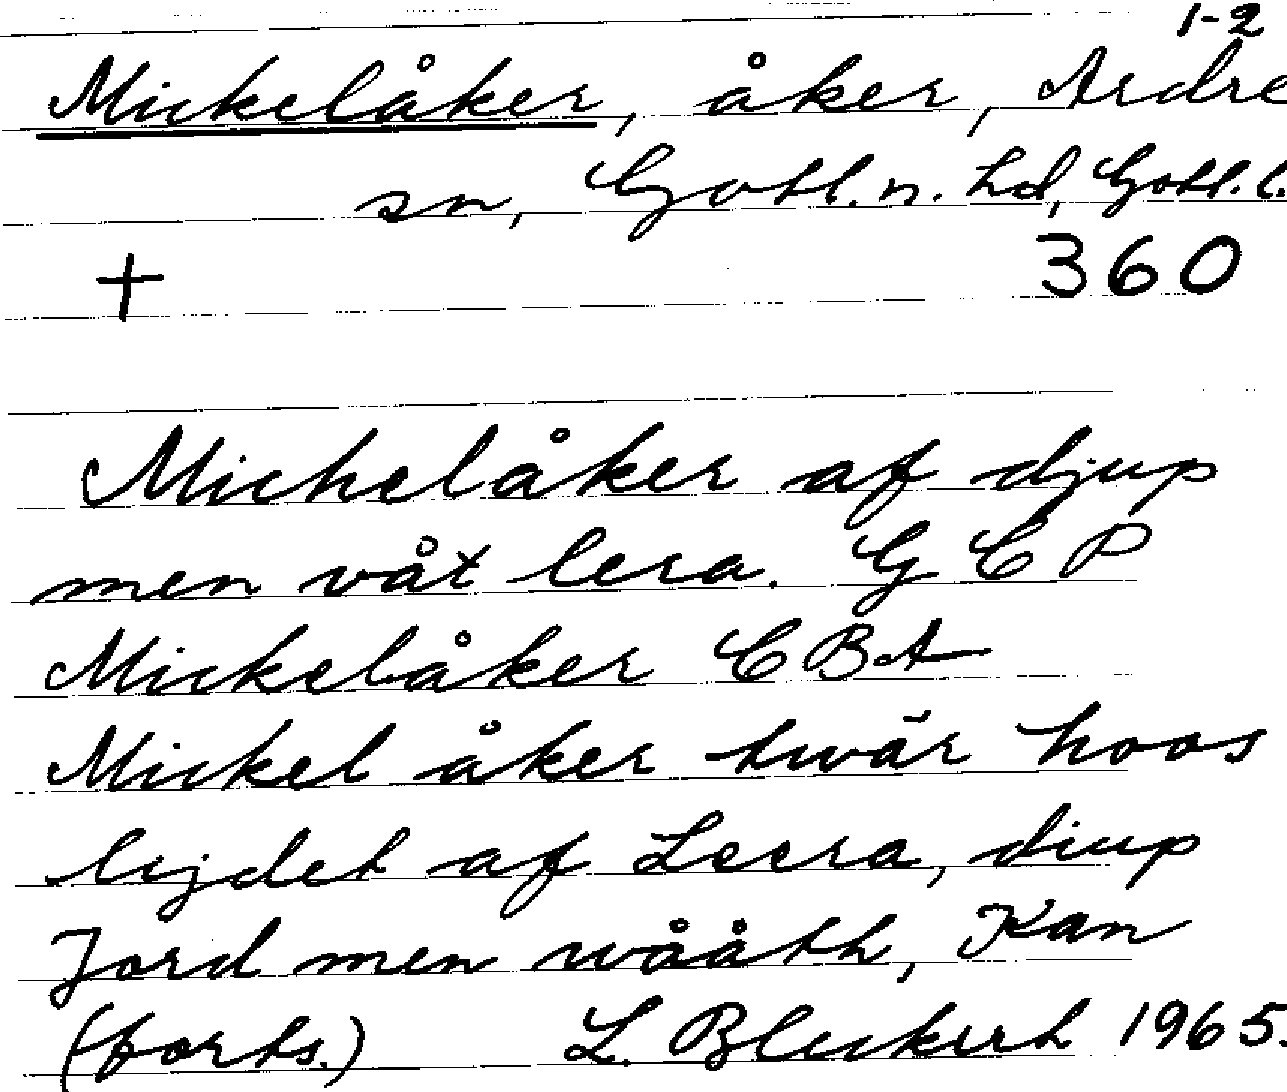 1-2
Mickelåker, åker, Ardre
sn, Gotl.n. hd, Gotl.l.
+ 360
Michelåker af djup
men våt lera. G C P
Mickelåker C B A
Mickel åker twär hoos
lijdet af Leera, diup
Jord men wååth, Kan
(forts.) L. Bleckert 1965.